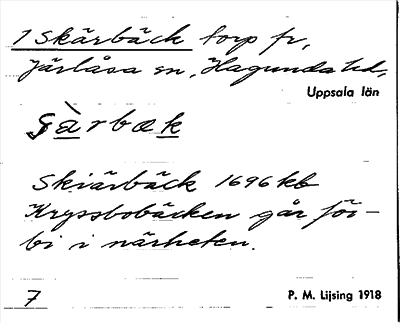 1 Skärbäck torp fr,
Järlåsa sn, Hagunda hd,
Uppsala län
Skiärbäck 1696 kb
Kryssbobäcken går för-
bi i närheten.
7
P. M. Lijsing 1918